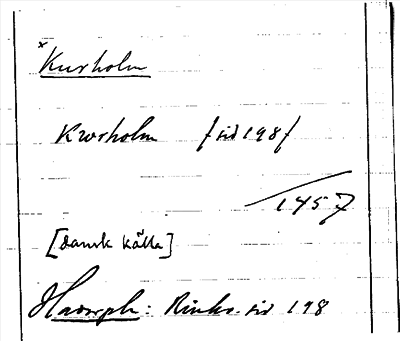 *Kursholm
Kwrholm / sid 198 /
1457
[dansk källa]
Hadorph: Rimkr. sid 198